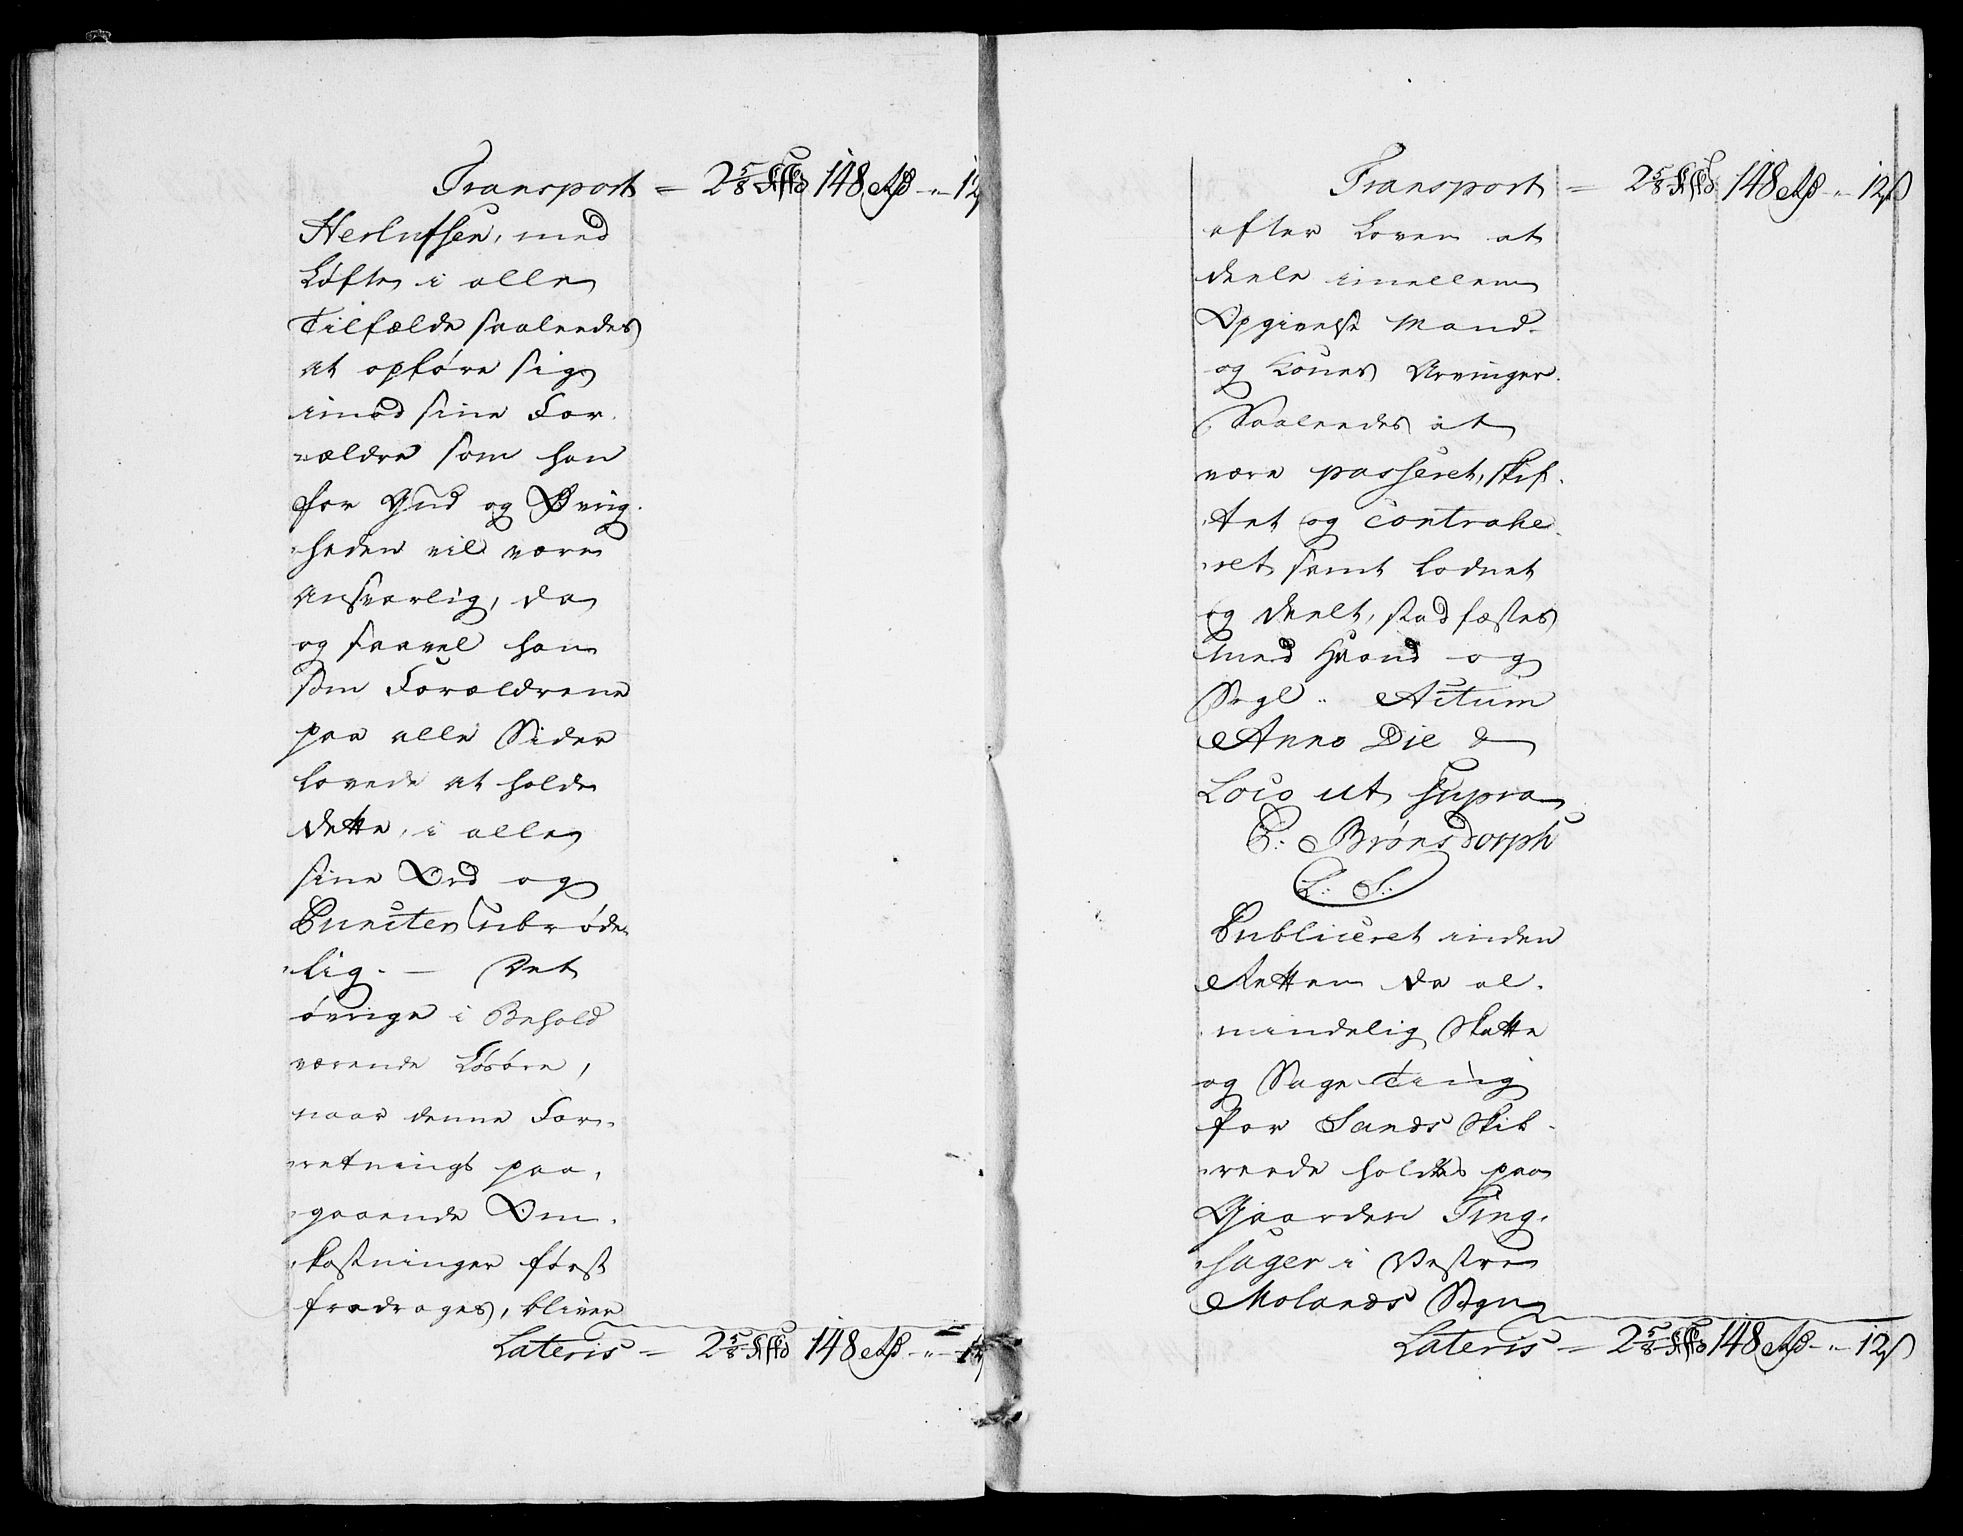 Transport = 2 5/8 Skffd 148 Rd - " - 12
Herlufsen, med
Løfte i alle
Tilfælde saaleedes
at opføre sig
imod sine For-
ældre som han
for Gud og Øvrig-
heden vil være
Ansvarlig, da
og saavel han
som Forældrene
paa alle Sider
lovede at holde
dette, i alle
sine Ord og
Puncter ubrøde-
lig. — Det
øvrige i Behold
værende Løsøre,
naar denne For-
retnings paa-
gaaende Om-
kostninger først
fradrages, bliver
Lateris = 2 5/8 Skffd 148 Rd - " - 12
Transport = 2 5/8 Skffd 148 Rd - " - 12ß
efter Loven at
deele imellem
Opgivelse Mand-
og Kones Arvinger.
Saaleedes at
være passeret, skif-
tet og contrahe-
ret samt Lodnet
og deelt, stadfæstes
med Haand og
Segl. Actum
Anno Die &
Loco ut supra
P: Brønsdorph
L: S:
Publiceret inden
Retten da al-
mindelig Skatte
og Sage Ting
for Sands Skib-
reede holdtes paa
Gaarden Ting-
sager i Vestre
Molands Sogn
Lateris = 2 5/8 Skffd 148 Rd - " - 12ß